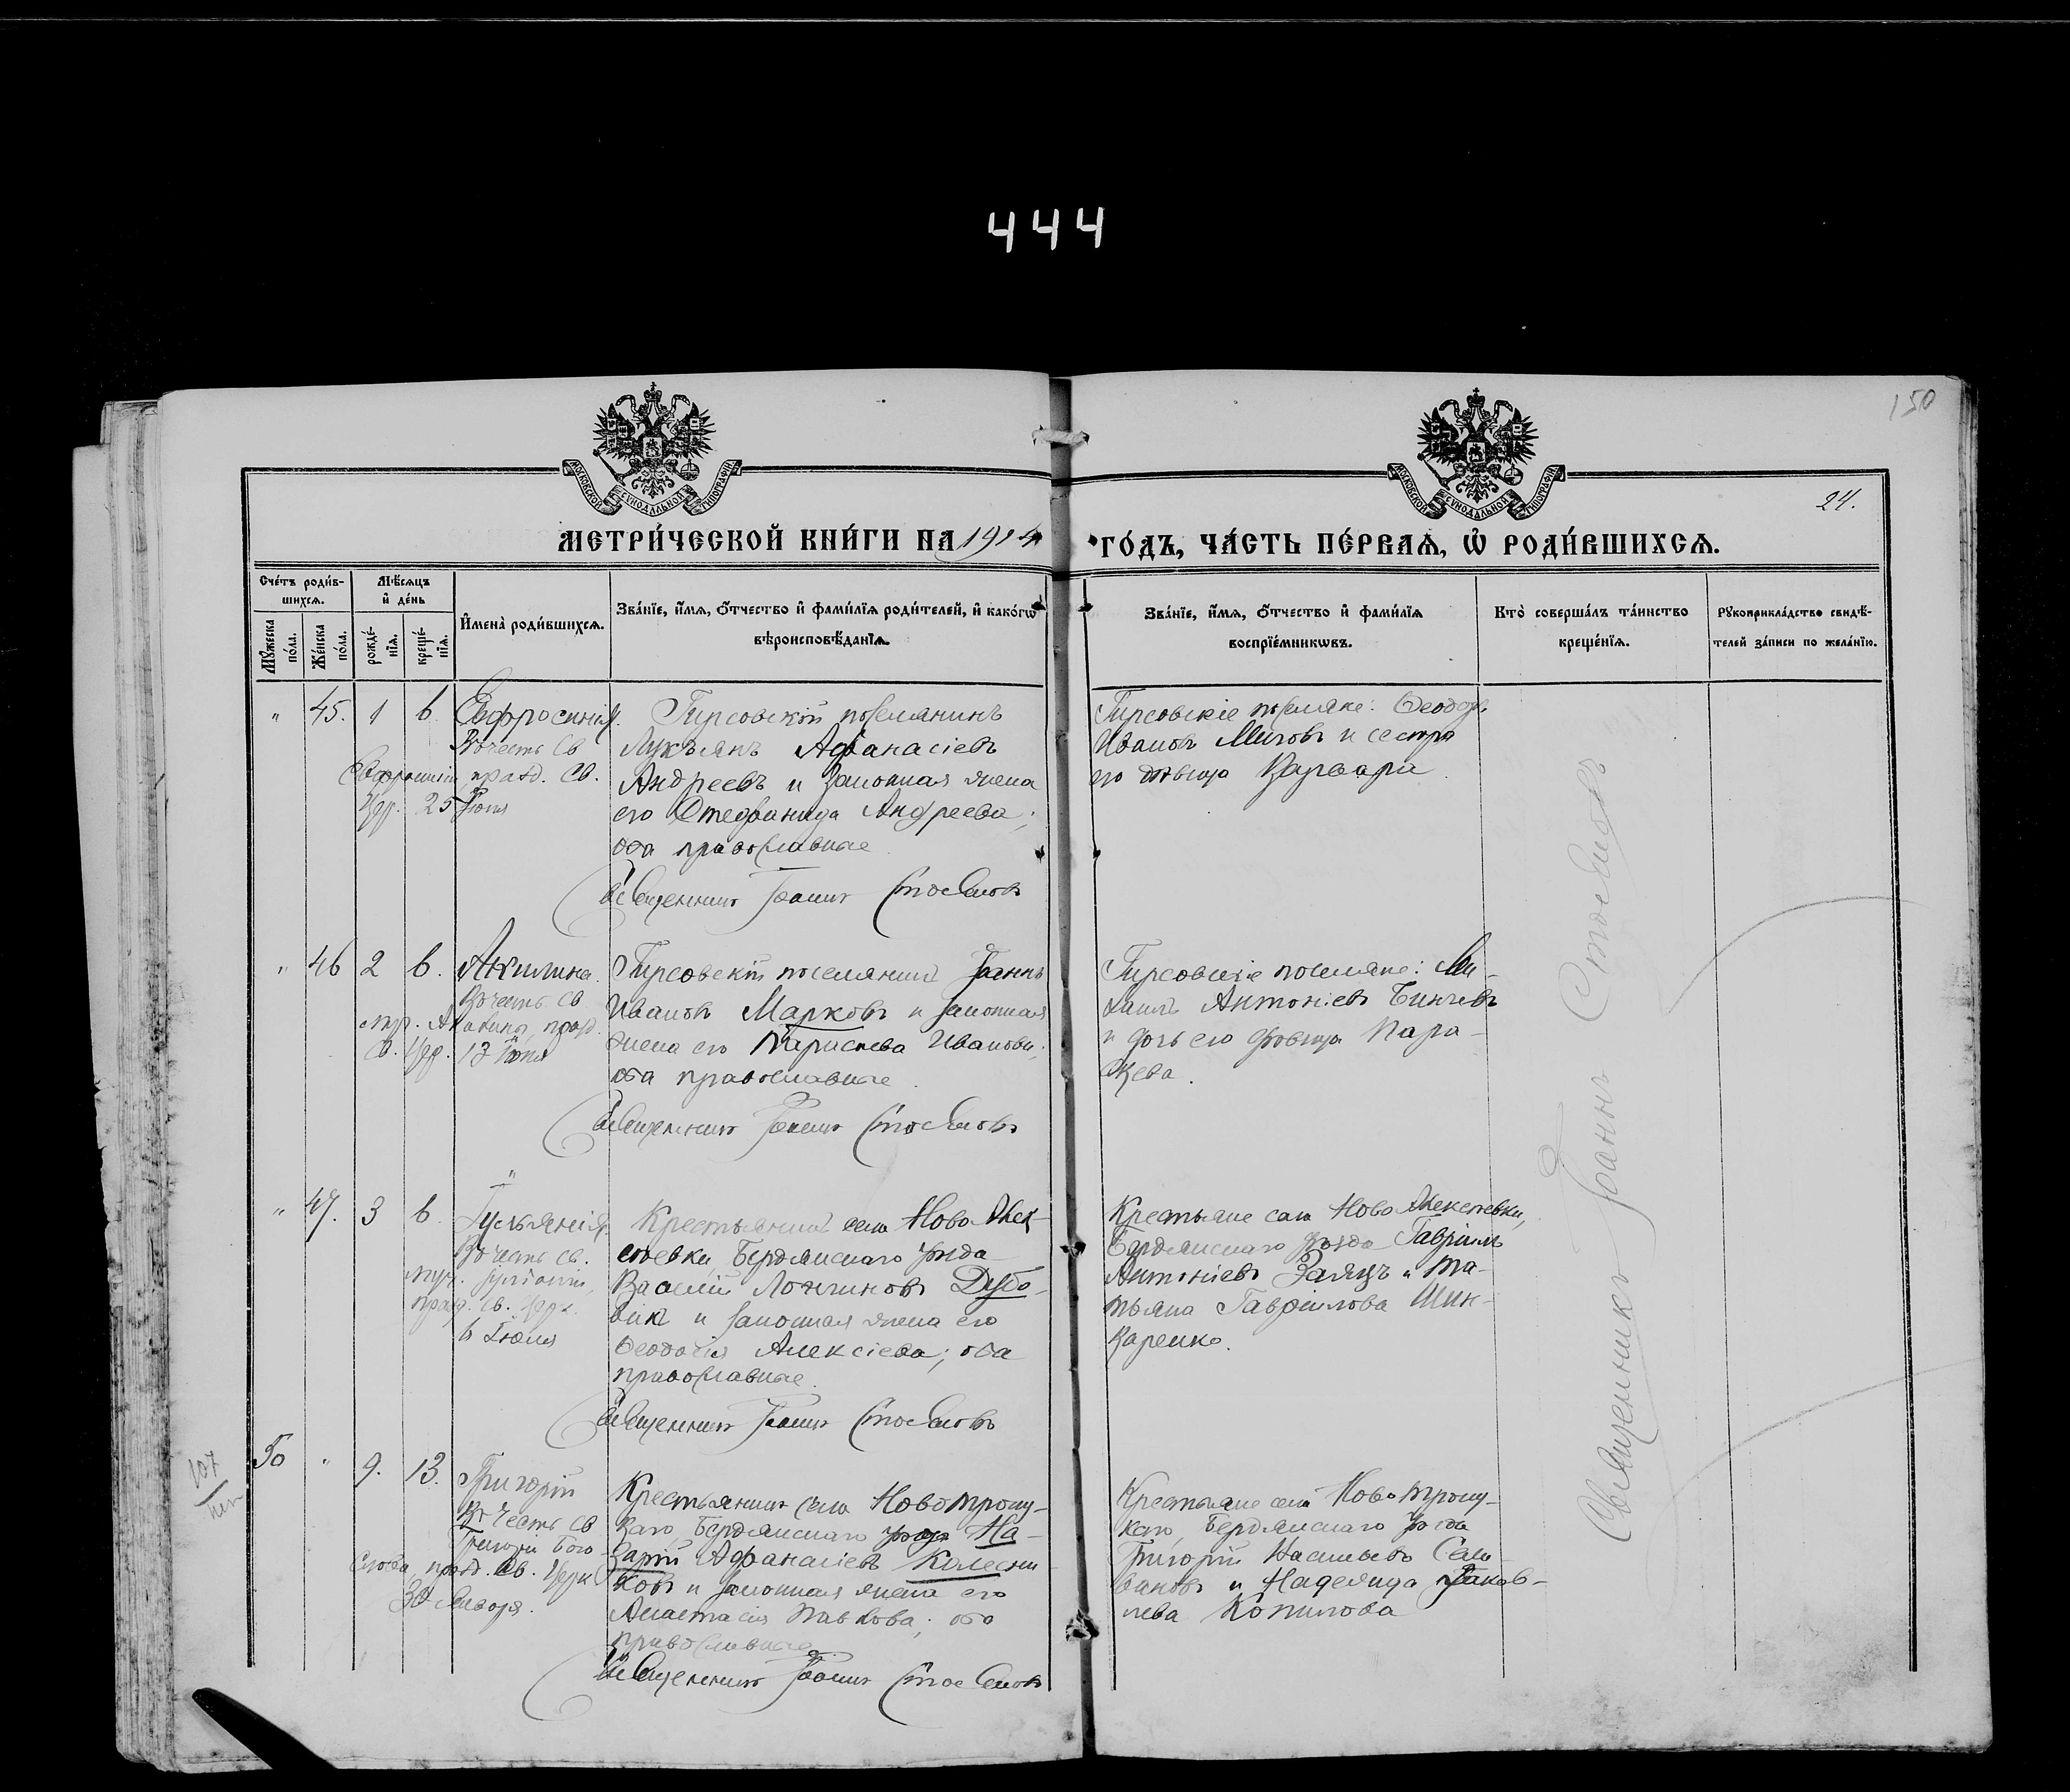 444
150
МОСКОВСКОЙ СѴНОДАЛЬНОЙ ТИПОГРАФІИ
МОСКОВСКОЙ СѴНОДАЛЬНОЙ ТИПОГРАФІИ
24.
МЕТРИ́ЧЕСКОЙ КНИ́ГИ НА 1914
ГО́ДЪ, ЧА́СТЬ ПЕ́РВАѦ, Ѽ РОДИ́ВШИХСѦ.
Сче́тъ роди́в-
шихсѧ.
Мѣ́сѧцъ
и҆ де́нь
Мꙋ́жеска
по́ла.
Же́нска
по́ла.
рожде́-
нїѧ.
креще́-
нїѧ.
И҆мена̀ роди́вшихсѧ.
Зва́нїе, и҆́мѧ, ѻ҆́тчество и҆ фами́лїѧ роди́телей, и҆ како́гѡ
вѣроисповѣ́данїѧ.
Зва́нїе, и҆́мѧ, ѻ҆́тчество и҆ фами́лїѧ
воспрїе́мникѡвъ.
Кто̀ соверша́лъ та́инство
креще́нїѧ.
Рꙋкоприкла́дство свидѣ́-
телей за́писи по жела́нїю.
" 45. 1 6 Евфросинія.
Въ честь св
Евфросиніи празд. св.
Цер. 25 Іюня
Гирсовскій поселянинъ
Лукъянъ Афанасіевъ
Андреевъ и законная жена
его Стефанида Андреева;
оба православные
Священникъ Іоаннъ Стоеновъ
Гирсовскіе поселяне: Ѳеодоръ
Ивановъ Мичовъ и сестра
его дѣвица Варвара
" 46 2 6. Акилина.
Въ честь св
мр. Акилины, празд.
св. Цер. 13 Іюня
Гирсовскій поселянинъ Іоаннъ
Ивановъ Марковъ и законная
жена его Параскева Иванова;
оба православные.
Священникъ Іоаннъ Стоеновъ
Гирсовскіе поселяне: Ми-
хаилъ Антоніевъ
и дочь его дѣвица Пара-
скева.
" 47. 3 6 Іуліанія.
Въ честь св.
муч. Іуліаніи,
празд. св. Церк.
Іюля
Крестьянинъ села Ново Алек-
сѣевки, Бердянскаго уѣзда
Василій Логгиновъ Дубо-
викъ и законная жена его
Ѳеодосія Алексіева; оба
православные.
Священникъ Іоаннъ Стоеновъ
Крестьяне села Ново Алексѣевки,
Бердянскаго уѣзда Гавріилъ
Антоніевъ Заяцъ и Та-
тьяна Гавріилова Шин-
каренко.
107
50 " 9. 13. Григорій
Въ честь св
Григорія Бого-
слова, празд. св. Церк
30 Января.
Крестьянинъ села Новотроиц-
каго, Бердянскаго уѣзда На-
зарій Афанасіевъ Колесни-
ковъ и законная жена его
Анастасія Павлова; оба
православные
Священникъ Іоаннъ Стоеновъ
Крестьяне села Ново Троиц-
каго, Бердянскаго уѣзда
Григорій Васильевъ Сели-
вановъ и Надежда Яков-
лева Копилова
Священникъ Іоаннъ Стоеновъ